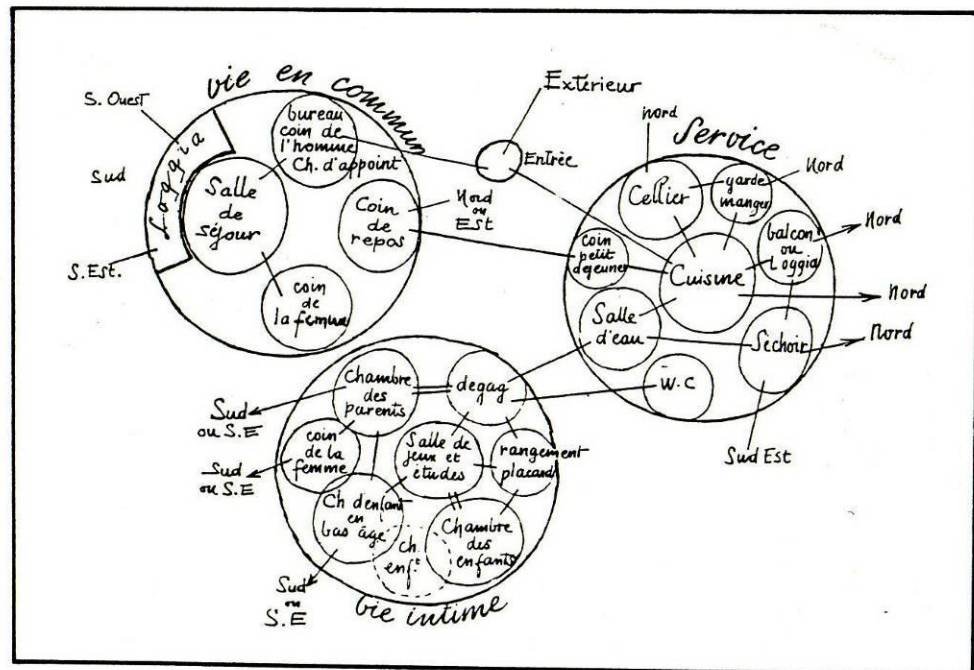 vie en commun
S. Ouest
Sud
S. Est.
Loggia
Salle
de
séjour
bureau
coin de
l'homme
Ch. d'appoint
Coin
de
repos
Nord
ou
Est
coin
de
la femme
Extérieur
Entrée
Service
nord
Cellier
garde
manger
Nord
balcon
ou
Loggia
Nord
coin
petit
dejeuner
Cuisine
Nord
Salle
d'eau
Séchoir
Nord
W.C
Sud Est
Chambre
des
parents
degag
Sud
ou S.E
coin
de la
femme
Salle de
jeux et
études
rangement
placards
Sud
ou S.E
Ch d'enfant
en
bas âge
ch.
enft
Chambre
des
enfants
Sud
ou
S.E
Vie intime